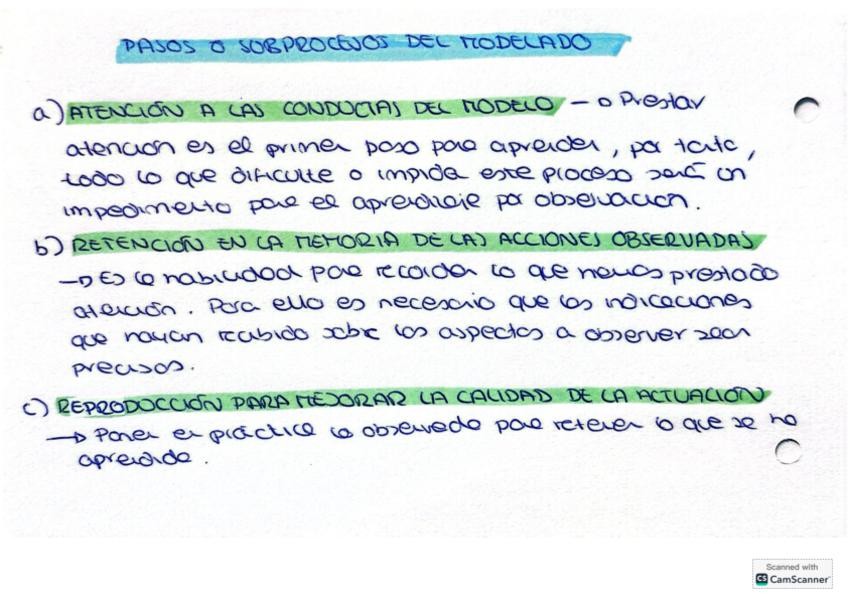 PASOS O SUBPROCESOS DEL MODELADO
a) ATENCIÓN A LAS CONDUCTAS DEL MODELO → Prestar
atención es el primer paso para aprender, por tanto,
todo lo que dificulte o impida este proceso será un
impedimento para el aprendizaje por observación.
b) RETENCIÓN EN LA MEMORIA DE LAS ACCIONES OBSERVADAS
→ Es la habilidad para recordar lo que hemos prestado
atención. Para ello es necesario que las indicaciones
que hayan recibido sobre los aspectos a observar sean
precisos.
c) REPRODUCCIÓN PARA MEJORAR LA CALIDAD DE LA ACTUACIÓN
→ Poner en práctica lo observado para retener lo que se ha
aprendido.
Scanned with
CS CamScanner